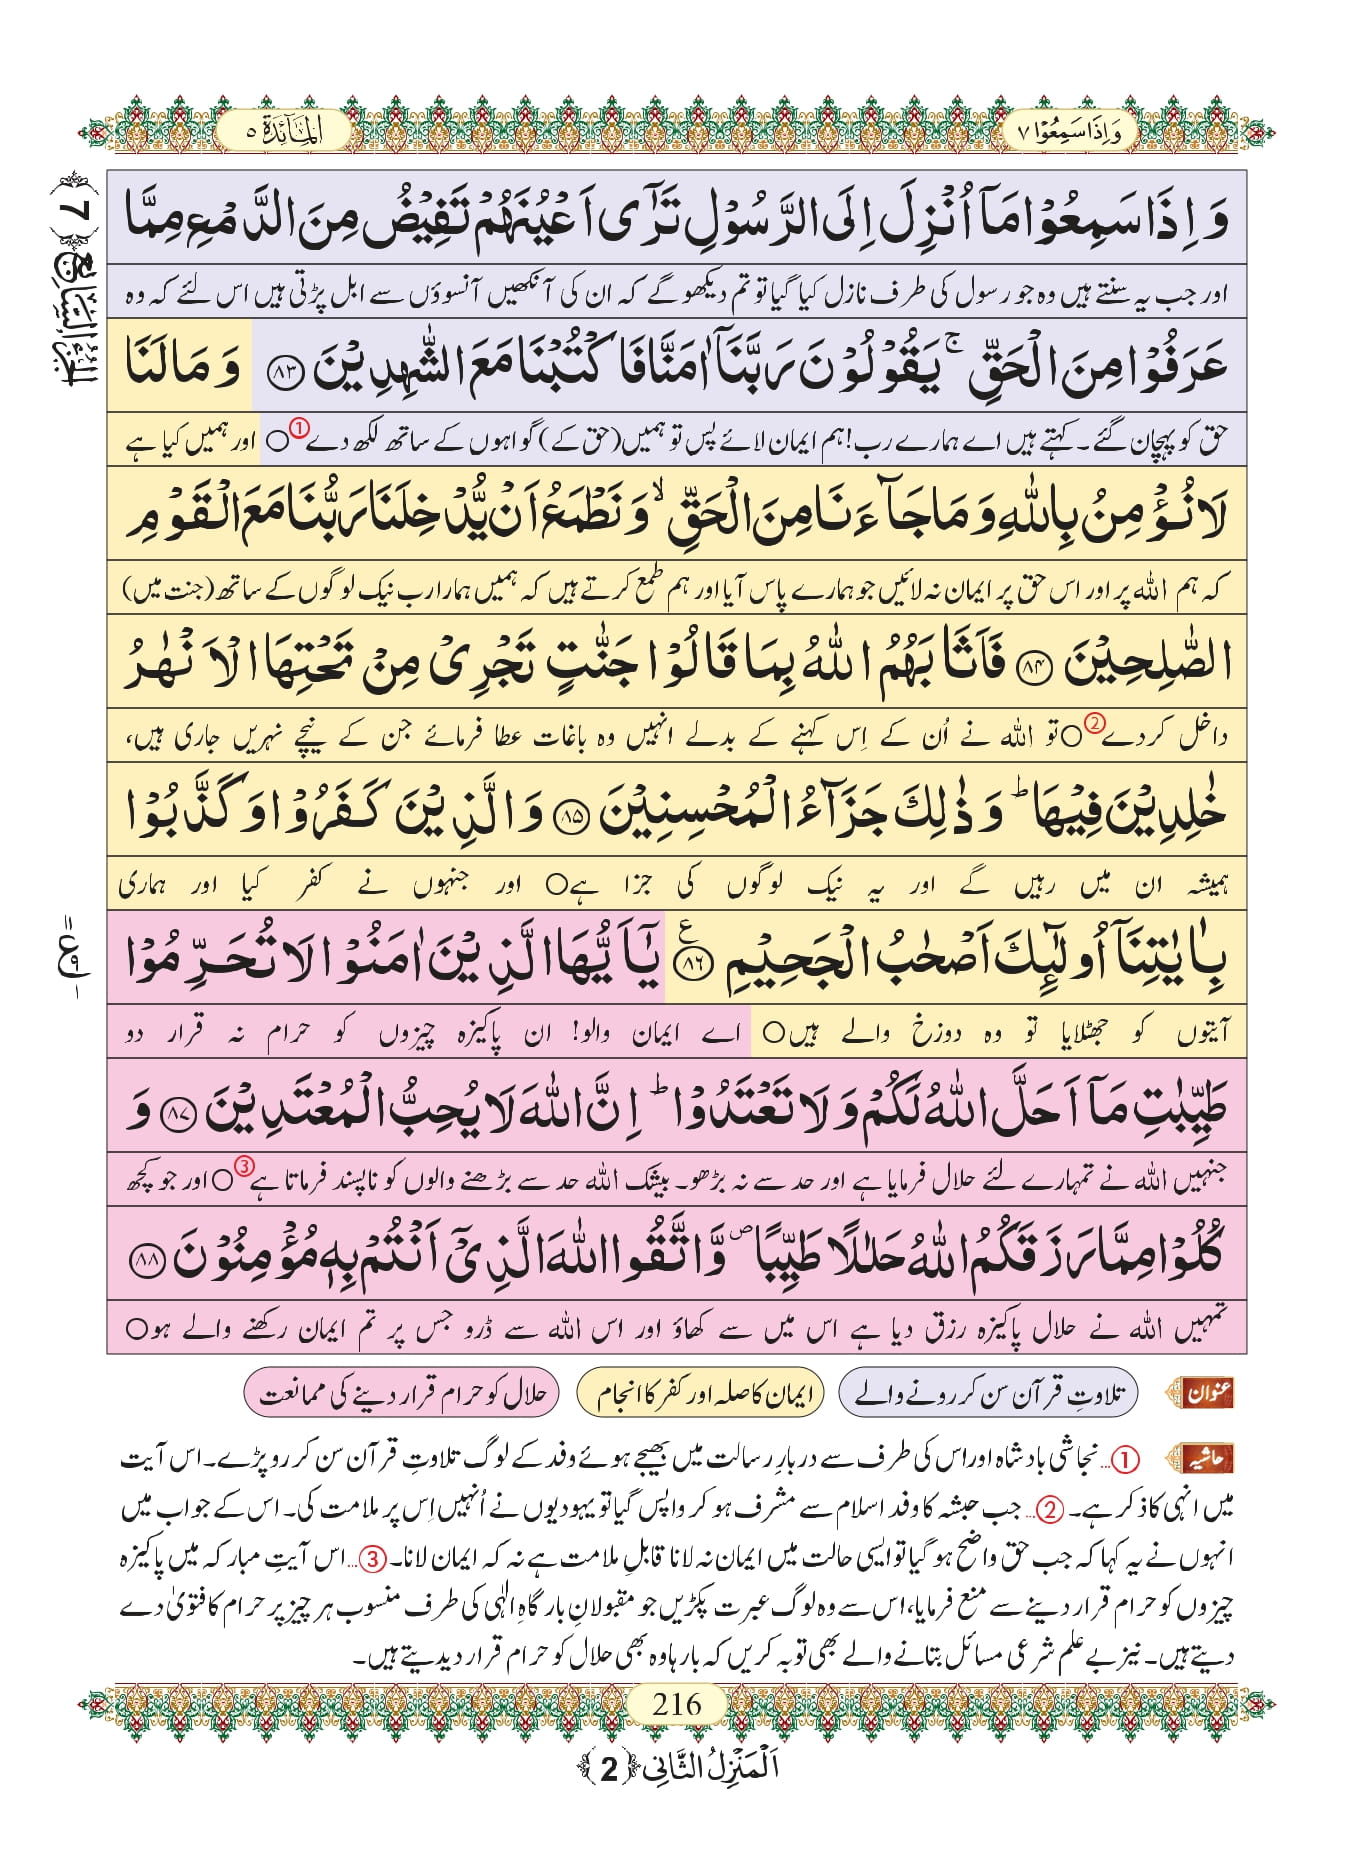 وَاِذَا سَمِعُوْا ۷
اَلْمَآئِدَة ۵
وَ اِذَا سَمِعُوْا مَاۤ اُنْزِلَ اِلَى الرَّسُوْلِ تَرٰۤى اَعْیُنَهُمْ تَفِیْضُ مِنَ الدَّمْعِ مِمَّا
اور جب یہ سنتے ہیں وہ جو رسول کی طرف نازل کیا گیا تو تم دیکھو گے کہ ان کی آنکھیں آنسوؤں سے ابل پڑتی ہیں اس لئے کہ وہ
عَرَفُوْا مِنَ الْحَقِّۚ یَقُوْلُوْنَ رَبَّنَاۤ اٰمَنَّا فَاكْتُبْنَا مَعَ الشّٰهِدِیْنَ ﴿۸۳﴾ وَ مَا لَنَا
حق کو پہچان گئے۔ کہتے ہیں اے ہمارے رب! ہم ایمان لائے پس تو ہمیں (حق کے) گواہوں کے ساتھ لکھ دے ① ○ اور ہمیں کیا ہے
لَا نُؤْمِنُ بِاللّٰهِ وَ مَا جَآءَنَا مِنَ الْحَقِّۙ وَ نَطْمَعُ اَنْ یُّدْخِلَنَا رَبُّنَا مَعَ الْقَوْمِ
کہ ہم اللہ پر اور اس حق پر ایمان نہ لائیں جو ہمارے پاس آیا اور ہم طمع کرتے ہیں کہ ہمیں ہمارا رب نیک لوگوں کے ساتھ (جنت میں)
الصّٰلِحِیْنَ ﴿۸۴﴾ فَاَثَابَهُمُ اللّٰهُ بِمَا قَالُوْا جَنّٰتٍ تَجْرِیْ مِنْ تَحْتِهَا الْاَنْهٰرُ
داخل کردے ② ○ تو اللہ نے اُن کے اِس کہنے کے بدلے انہیں وہ باغات عطا فرمائے جن کے نیچے نہریں جاری ہیں،
خٰلِدِیْنَ فِیْهَاؕ وَ ذٰلِكَ جَزَآءُ الْمُحْسِنِیْنَ ﴿۸۵﴾ وَ الَّذِیْنَ كَفَرُوْا وَ كَذَّبُوْا
ہمیشہ ان میں رہیں گے اور یہ نیک لوگوں کی جزا ہے ○ اور جنہوں نے کفر کیا اور ہماری
بِاٰیٰتِنَاۤ اُولٰٓىٕكَ اَصْحٰبُ الْجَحِیْمِ ﴿۸۶﴾ ع یٰۤاَیُّهَا الَّذِیْنَ اٰمَنُوْا لَا تُحَرِّمُوْا
آیتوں کو جھٹلایا تو وہ دوزخ والے ہیں ○ اے ایمان والو! ان پاکیزہ چیزوں کو حرام نہ قرار دو
طَیِّبٰتِ مَاۤ اَحَلَّ اللّٰهُ لَكُمْ وَ لَا تَعْتَدُوْاؕ اِنَّ اللّٰهَ لَا یُحِبُّ الْمُعْتَدِیْنَ ﴿۸۷﴾ وَ
جنہیں اللہ نے تمہارے لئے حلال فرمایا ہے اور حد سے نہ بڑھو۔ بیشک اللہ حد سے بڑھنے والوں کو ناپسند فرماتا ہے ③ ○ اور جو کچھ
كُلُوْا مِمَّا رَزَقَكُمُ اللّٰهُ حَلٰلًا طَیِّبًا۪ وَّ اتَّقُوا اللّٰهَ الَّذِیْۤ اَنْتُمْ بِهٖ مُؤْمِنُوْنَ ﴿۸۸﴾
تمہیں اللہ نے حلال پاکیزہ رزق دیا ہے اس میں سے کھاؤ اور اس اللہ سے ڈرو جس پر تم ایمان رکھنے والے ہو ○
عنوان تلاوتِ قرآن سن کر رونے والے ایمان کا صلہ اور کفر کا انجام حلال کو حرام قرار دینے کی ممانعت
حاشیہ ①... نجاشی بادشاہ اور اس کی طرف سے دربارِ رسالت میں بھیجے ہوئے وفد کے لوگ تلاوتِ قرآن سن کر رو پڑے۔ اس آیت
میں انہی کا ذکر ہے۔ ②... جب حبشہ کا وفد اسلام سے مشرف ہو کر واپس گیا تو یہودیوں نے اُنہیں اِس پر ملامت کی۔ اس کے جواب میں
انہوں نے یہ کہا کہ جب حق واضح ہو گیا تو ایسی حالت میں ایمان نہ لانا قابلِ ملامت ہے نہ کہ ایمان لانا۔ ③... اس آیتِ مبارکہ میں پاکیزہ
چیزوں کو حرام قرار دینے سے منع فرمایا، اس سے وہ لوگ عبرت پکڑیں جو مقبولانِ بارگاہِ الٰہی کی طرف منسوب ہر چیز پر حرام کا فتویٰ دے
دیتے ہیں۔ نیز بے علم شرعی مسائل بتانے والے بھی توبہ کریں کہ بارہا وہ بھی حلال کو حرام قرار دیدیتے ہیں۔
216
اَلْمَنْزِلُ الثَّانِی ﴿2﴾
اَلْجُزْءُ السَّابِعُ ﴿7﴾